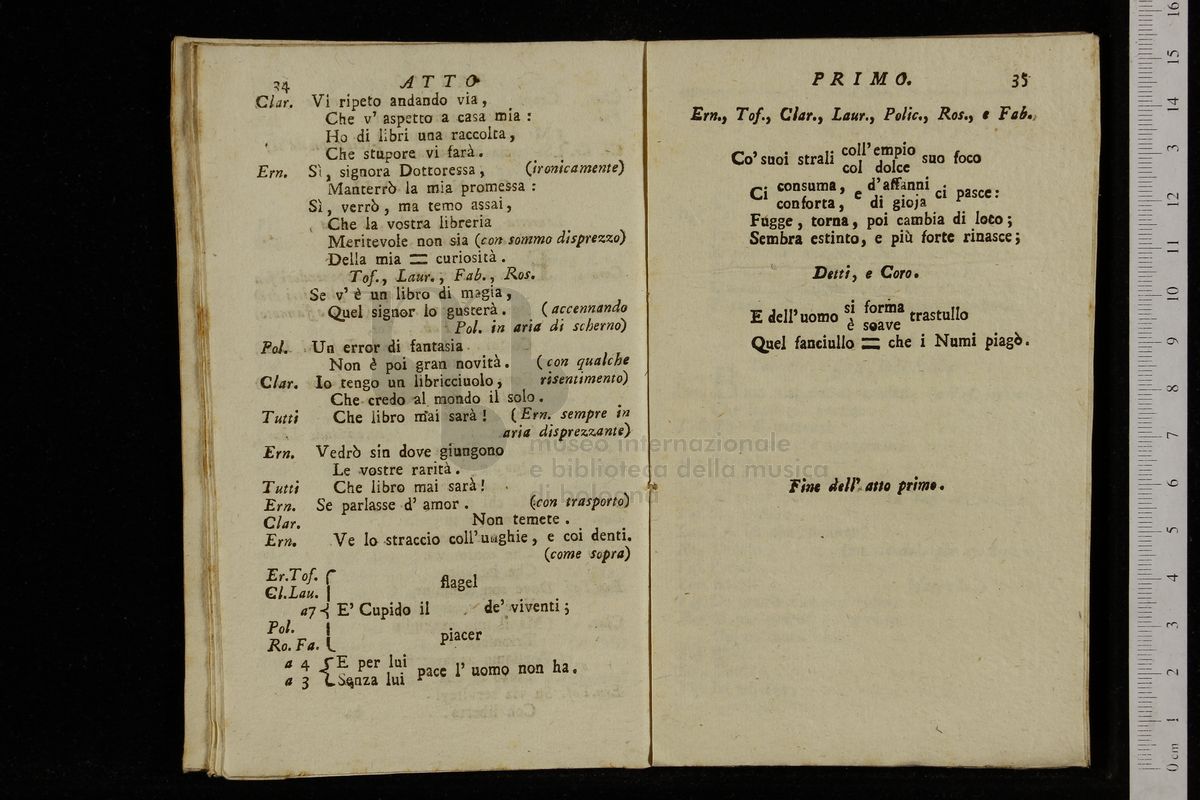 34 ATTO
Clar. Vi ripeto andando via,
Che v' aspetto a casa mia:
Ho di libri una raccolta,
Che stupore vi farà.
Ern. Sì, signora Dottoressa, (ironicamente)
Manterrò la mia promessa:
Sì, verrò, ma temo assai,
Che la vostra libreria
Meritevole non sia (con sommo disprezzo)
Della mia = curiosità.
Tof., Laur., Fab., Ros.
Se v' è un libro di magia,
Quel signor lo gusterà. (accennando
Pol. in aria di scherno)
Pol. Un error di fantasia
Non è poi gran novità. (con qualche
Clar. Io tengo un libricciuolo, risentimento)
Che credo al mondo il solo.
Tutti Che libro mai sarà! (Ern. sempre in
aria disprezzante)
Ern. Vedrò sin dove giungono
Le vostre rarità.
Tutti Che libro mai sarà!
Ern. Se parlasse d' amor. (con trasporto)
Clar. Non temete.
Ern. Ve lo straccio coll' unghie, e coi denti.
(come sopra)
Er. Tof.
Cl. Lau. flagel
a7 E' Cupido il de' viventi;
Pol.
Ro. Fa. piacer
a 4 E per lui
a 3 Senza lui pace l' uomo non ha.
PRIMO. 35
Ern., Tof., Clar., Laur., Polic., Ros., e Fab.
Co' suoi strali coll' empio suo foco
col dolce
Ci consuma, e d'affanni ci pasce:
conforta, di gioja
Fugge, torna, poi cambia di loco;
Sembra estinto, e più forte rinasce;
Detti, e Coro.
E dell' uomo si forma trastullo
è soave
Quel fanciullo = che i Numi piagò.
Fine dell' atto primo.
museo internazionale
e biblioteca della musica
di bologna
0 cm 1 2 3 4 5 6 7 8 9 10 11 12 13 14 15 16